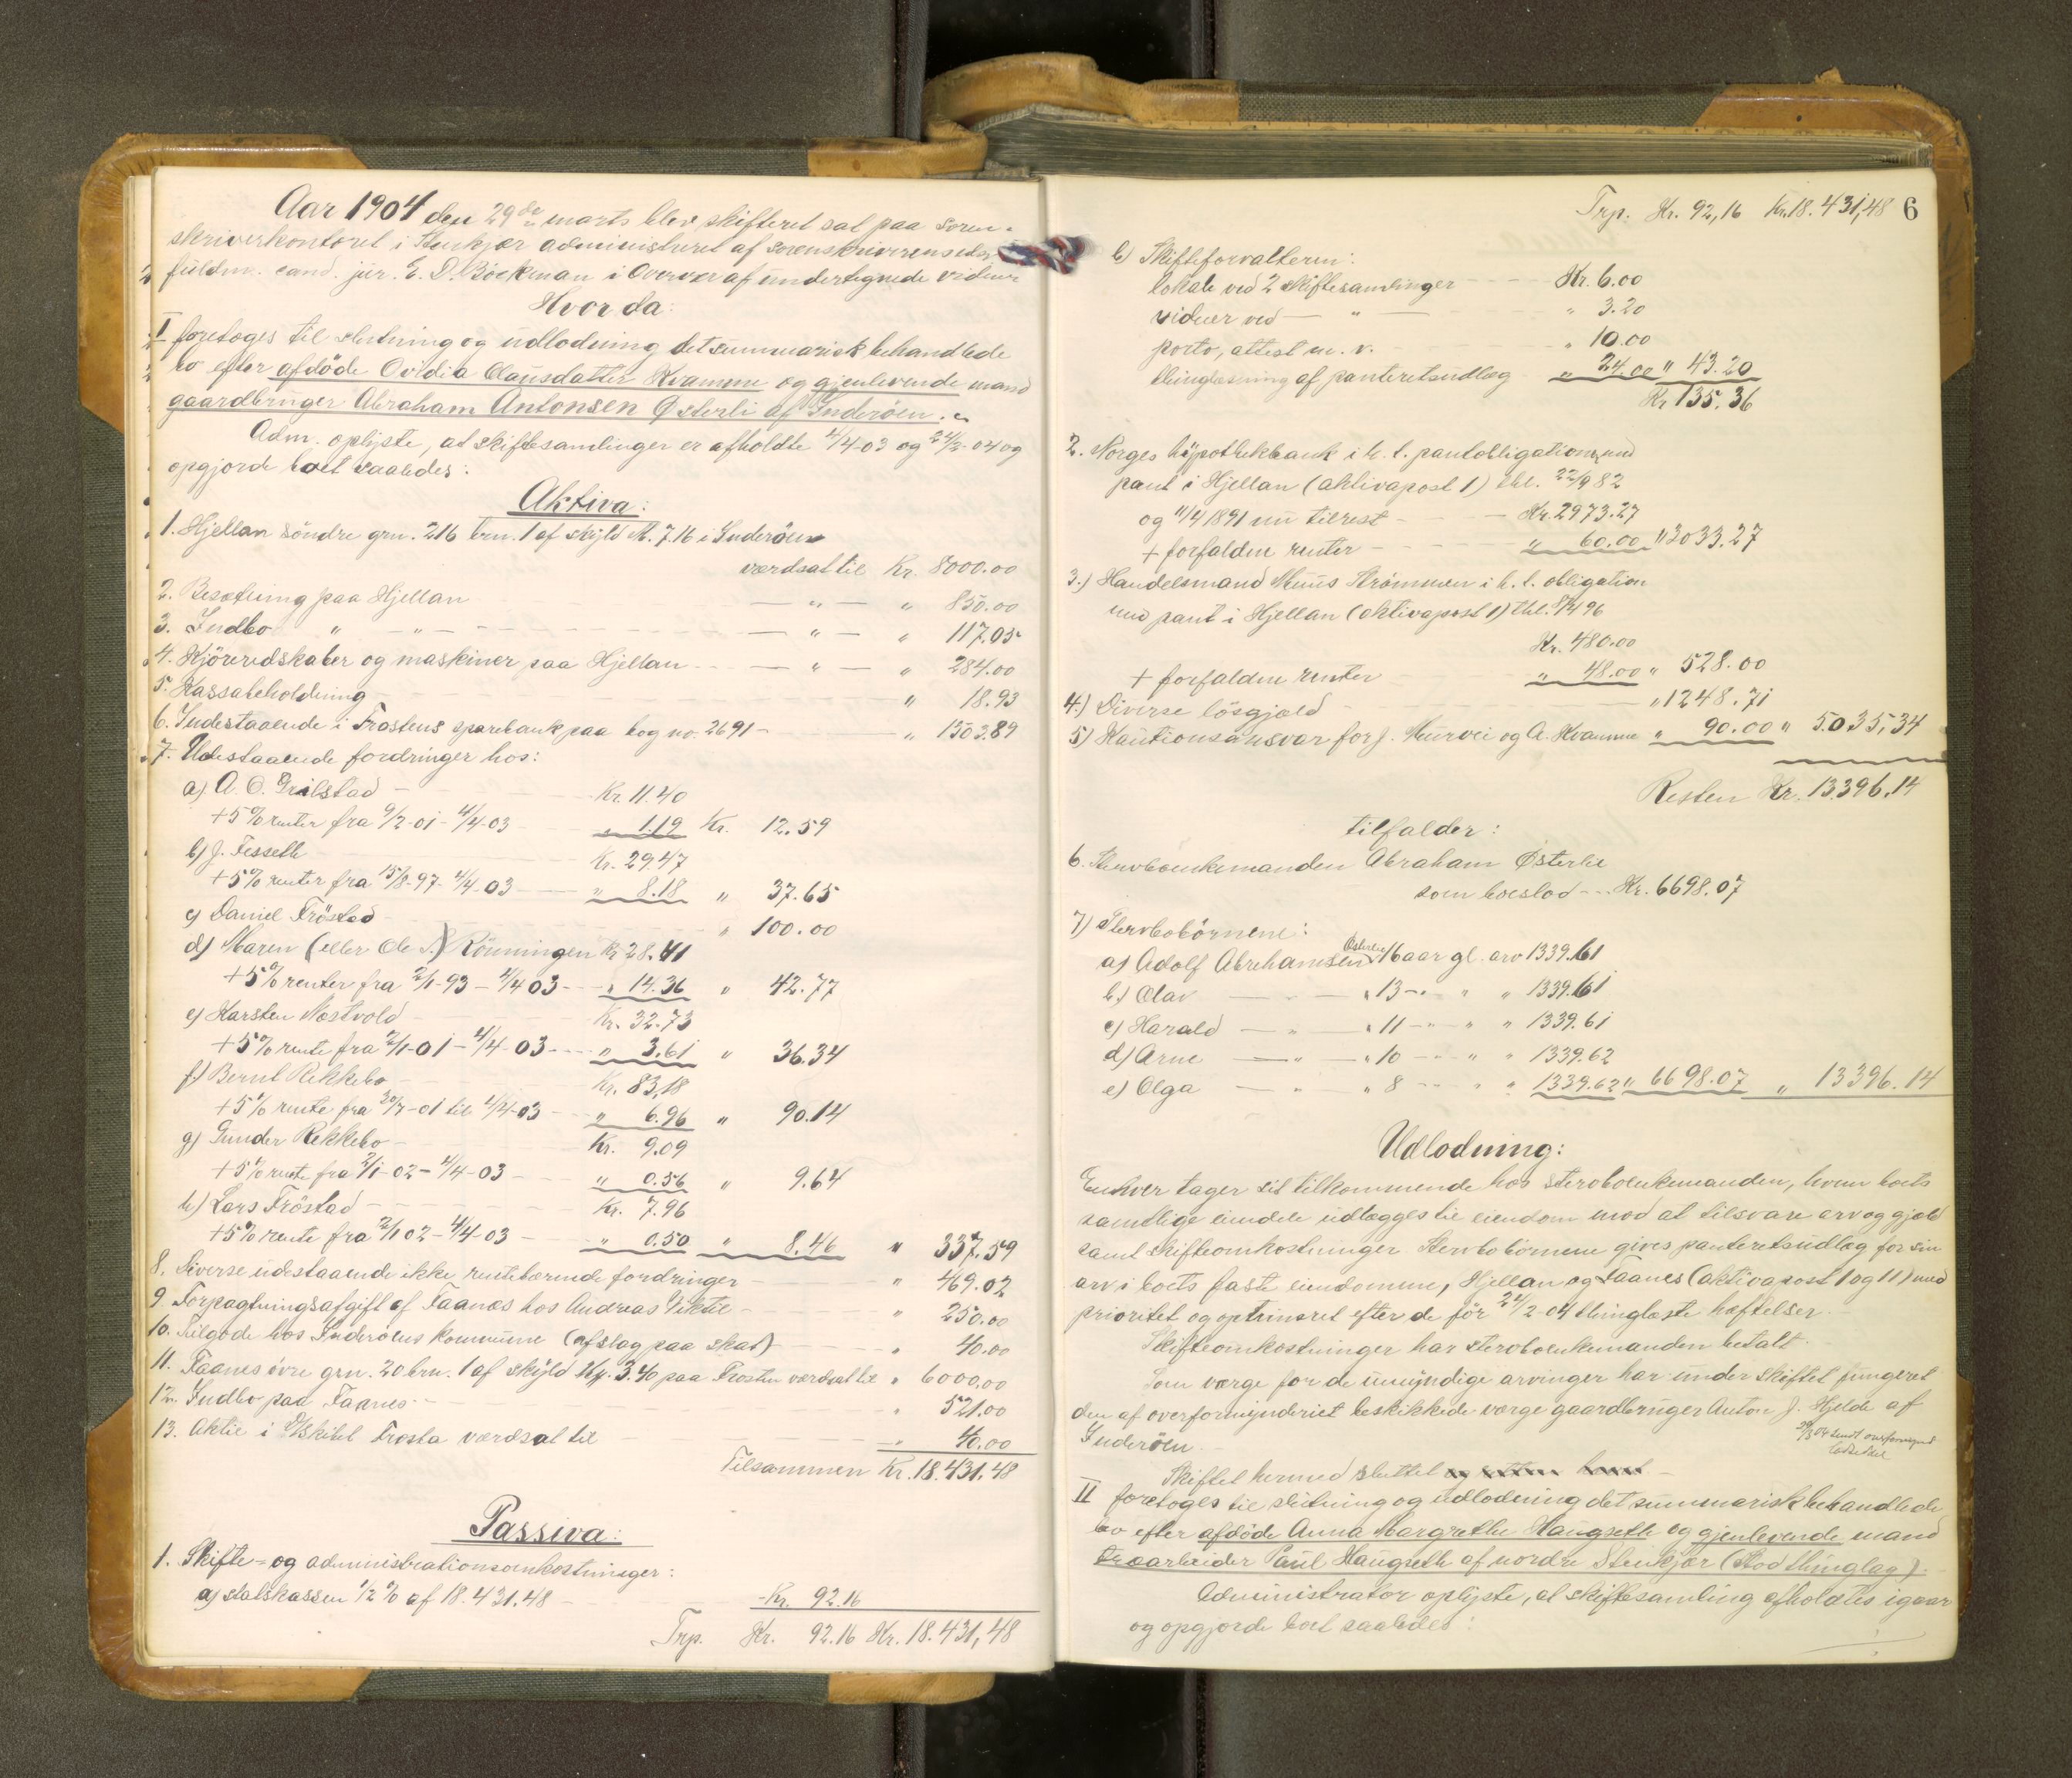 Aar 1904 den 29de marts blev skifteret sat paa soren-
skriverkontoret i Stenkjær administreret af sorenskriverens eds.
fuldm. cand. jur. E. D. Böckman i Overvær af undertegnede vidner
Hvor da:
I foretoges til slutning og udlodning det summarisk behandlede
bo efter afdöde Ovidia Clausdatter Kvamme og gjenlevende mand
gaardbruger Abraham Antonsen Østerli af Inderöen.
Adm. oplyste, at skiftesamlinger er afholdte 4/4-03 og 24/2-04 og
opgjorde boet saaledes:
Aktiva:
1. Hjellan söndre grn. 216 brn. 1 af skyld M. 7.16 i Inderöen
værdsat til Kr. 8000.00
2. Besætning paa Hjellan — " — " 850.00
3. Indbo " — " — — " — " 117.05
4. Kjöreredskaber og maskiner paa Hjellan — " — " 284.00
5. Kassabeholdning " 18.93
6. Indestaaende i Frostens sparebank paa bog no. 2691 - " 1503.89
7. Udestaaende fordringer hos:
a) A. O. Grilstad - Kr. 11.40
+5% renter fra 9/2-01-4/4-03 " 1.19 Kr. 12.59
b) J. Fesseth Kr. 29.47
+5% renter fra 15/8-97-4/4-03 — " 8.18 " 37.65
c) Daniel Fröstad " 100.00
d) Maren (eller Ole A.) Rönningen Kr 28.41
+5% renter fra 2/1-93 - 4/4 03 - " 14.36 " 42.77
e) Karsten Nostvold Kr. 32.73
+5% rente fra 2/1-01 - 4/4-03 - " 3.61 " 36.34
f) Bernt Rekkebo Kr. 83,18
+5% rente fra 30/7-01 til 4/4-03 " 6.96 " 90.14
g) Gunder Rekkebo - Kr. 9.09
+5% rente fra 2/1-02 - 4/4-03 - " 0.56 " 9.64
h) Lars Fröstad - Kr. 7.96
+5% rente fra 2/1 02 - 4/4-03 - " 0.50 " 8.46 " 337.59
8. Diverse udestaaende ikke rentebærende fordringer " 469.02
9. Forpagtningsafgift af Faanæs hos Andreas Viktil - " 250.00
10. Tilgode hos Inderöens kommune (afslag paa skat) " 40.00
11. Faanes övre grn. 20 brn. 1 af skyld M. 3.40 paa Frosten værdsat til " 6000.00
12. Indbo paa Faanes - " 521.00
13. Aktie i D/Skibet Frosta værdsat til " 40.00
Tilsammen Kr. 18.431,48
Passiva:
1. Skifte- og administrationsomkostninger:
a) statskassen 1/2% af 18.431.48 - Kr. 92.16
Trp. Kr. 92.16 Kr. 18.431,48
Trp. Kr. 92,16 Kr. 18.431,48 6
b) Skifteforvalteren:
lokale ved 2 skiftesamlinger - Kr. 6.00
vidner ved — " — " 3.20
porto, attest m. v. " 10.00
thinglæsning af panteretsudlæg " 24.00 " 43.20
Kr 135.36
2. Norges hypothekbank i h. t. pantobligationer med
pant i Hjellan (aktivapost 1) thl. 22/9 82
og 11/4 1891 nu tilrest - Kr. 2973.27
+ forfaldne renter - " 60.00 " 3033.27
3.) Handelsmand Muus Strömmen i h. t. obligation
med pant i Hjellan (aktivapost 1) thl. 8/4 96
Kr. 480.00
+ forfaldne renter " 48.00 " 528.00
4.) Diverse lösgjæld " 1248.71
5) Kautionsansvar for J. Murvei og A. Kvamme " 90.00 " 5.035,34
Resten Kr. 13.396.14
tilfalder:
6. Stervboenkemanden Abraham Østerlie
som boeslod - - Kr. 6698.07
7) Stervbobörnene:
a) Adolf Abrahamsen Østerlie 16 aar gl. arv 1339.61
b) Olav — " 13 - " " " 1339.61
c) Harald — " — " 11 - " " " 1339.61
d) Arne — " — " 10 - " " " 1339.62
e) Olga — " " 8 - " " " 1339.62 " 6698.07 " 13396.14
Udlodning:
Enhver tager sit tilkommende hos stervboenkemanden, hvem boets
samtlige eiendele udlægges til eiendom mod at tilsvare arv og gjæld
samt skifteomkostninger. Stervbobörnene gives panteretsudlæg for sin
arv i boets faste eiendomme, Hjellan og Faanes (aktivapost 1 og 11) med
prioritet og optrinsret efter de för 24/2-04 thinglæste hæftelser.
Skifteomkostninger har stervboenkemanden betalt.
Som værge for de umyndige arvinger har under skiftet fungeret
den af overformynderiet beskikkede værge gaardbruger Anton J. Hjelde af
Inderöen.
29/3 04 sendt overformynd
Skiftet hermed sluttet
II foretoges til slutning og udlodning det summarisk behandlede
bo efter afdöde Anna Margrethe Haugseth og gjenlevende mand
træarbeider Paul Haugseth af nordre Stenkjær (Stod thinglag).
Administrator oplyste, at skiftesamling afholdtes igaar
og opgjorde boet saaledes: